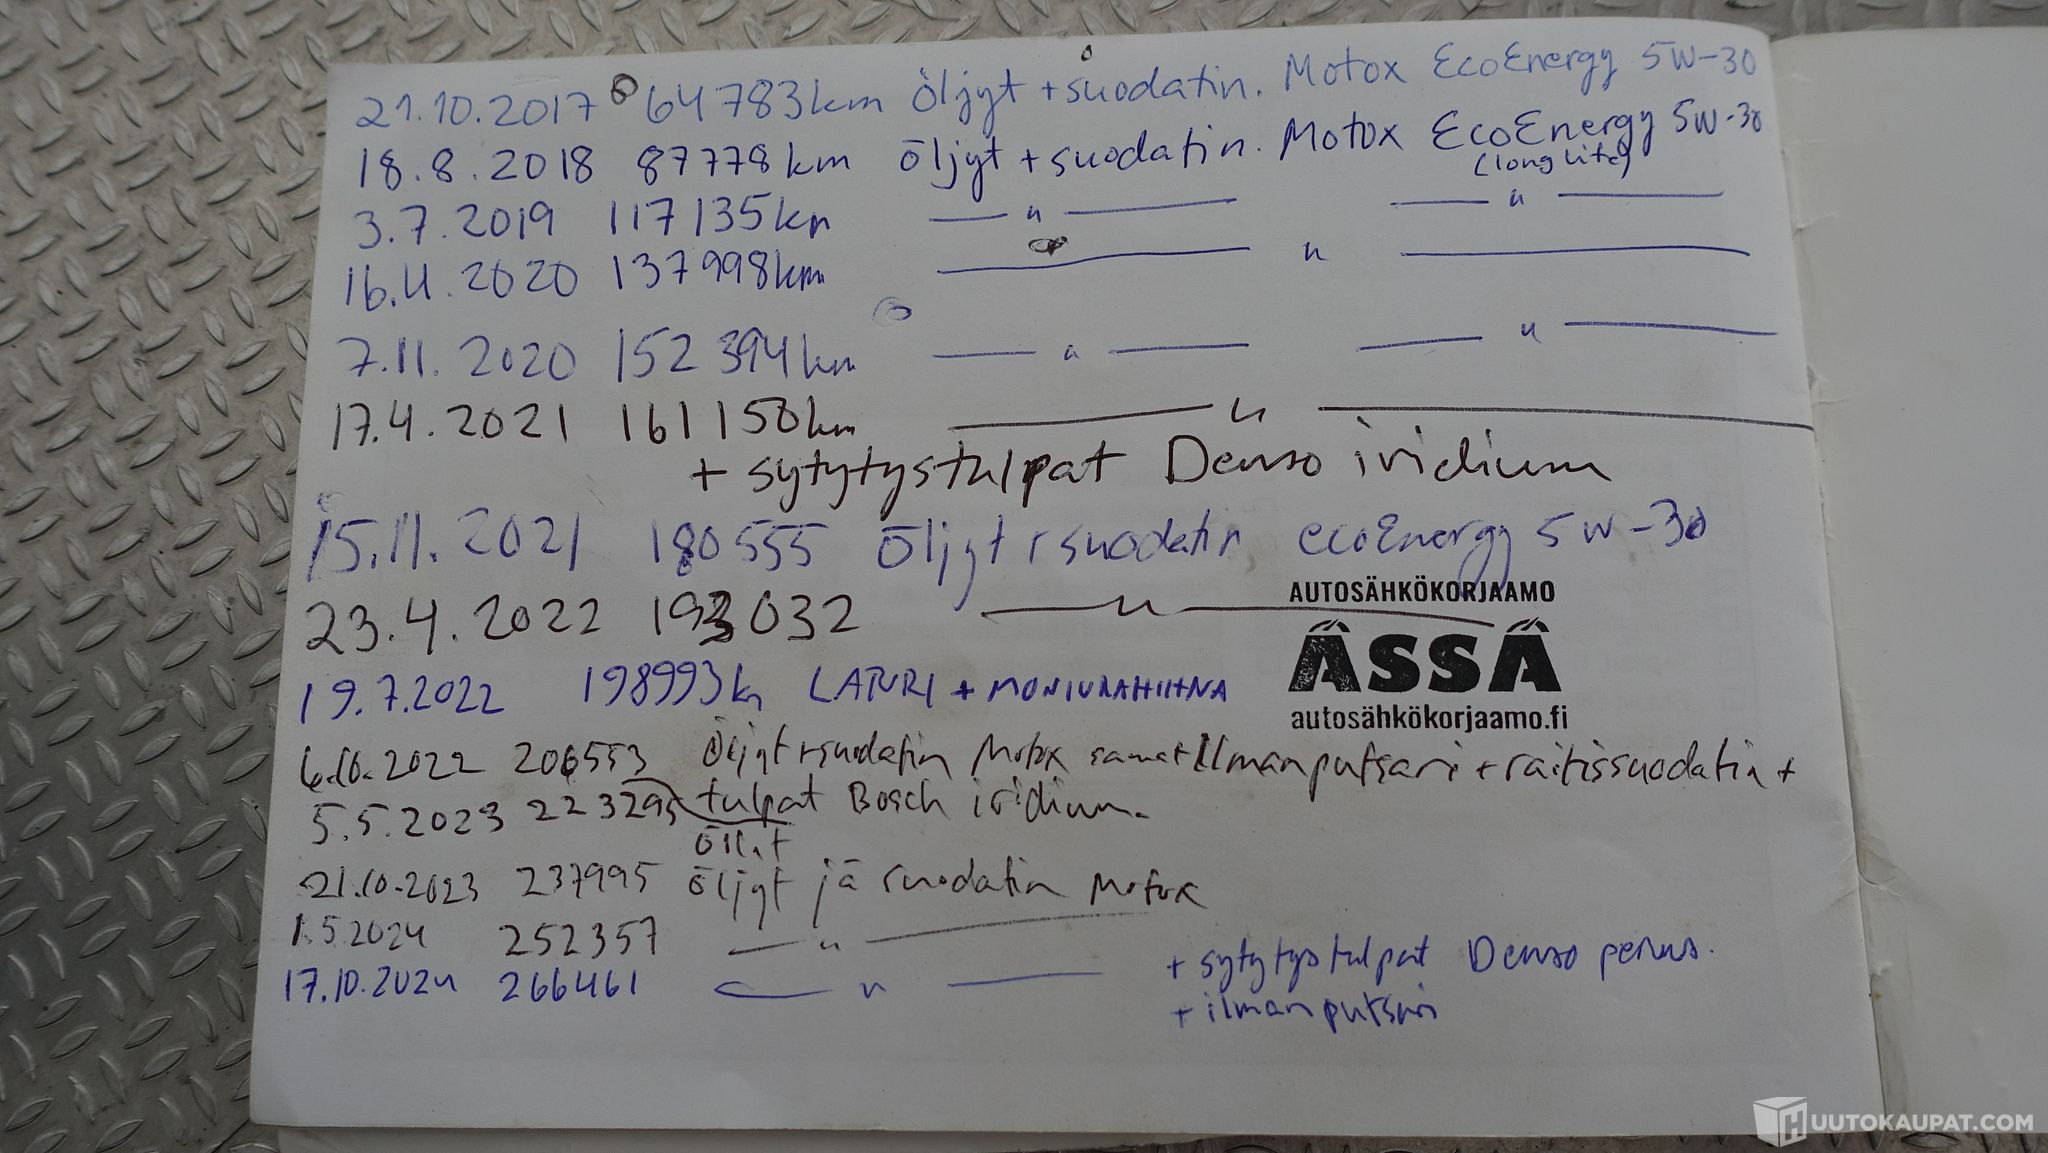 21.10.2017 64783km Öljyt + suodatin. Motox EcoEnergy 5W-30
18.8.2018 87778km Öljyt + suodatin. Motox EcoEnergy 5W-30
(long life)
3.7.2019 117135km — " — — " —
16.4.2020 137998km — " —
7.11.2020 152394km — " — — " —
17.4.2021 161150km — " —
+ sytytystulpat Denso iridium
15.11.2021 180555 Öljyt + suodatin ecoEnergy 5W-30
23.4.2022 193032 — " —
AUTOSÄHKÖKORJAAMO
ÄSSÄ
autosähkökorjaamo.fi
19.7.2022 198993km LATURI + MONIURAHIHNA
6.10.2022 206553 Öljyt + suodatin Motox samat + Ilmanputsari + raitissuodatin +
tulpat Bosch iridium.
5.5.2023 223295 öljyt
21.10.2023 237995 Öljyt jä suodatin Motox
1.5.2024 252357 — " —
17.10.2024 266461 — " — + sytytystulpat Denso perus.
+ ilmanputsari
HUUTOKAUPAT.COM